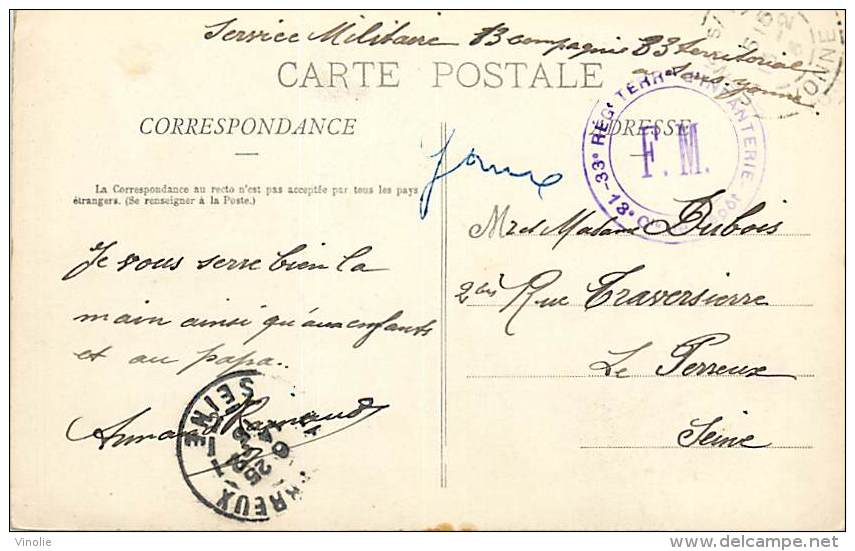 Service Militaire 13 compagnie 33 territorial
a Sens Yonne
CARTE POSTALE
CORRESPONDANCE
ADRESSE
YONNE
33e RÉGt TERRal D'INFANTERIE
13e Cie
F. M.
La Correspondance au recto n'est pas acceptée par tous les pays
étrangers. (Se renseigner à la Poste.)
Mr et Madame Dubois
2 bis Rue Traversierre
Le Perreux
Seine
Je vous serre bien la
main ainsi qu'aux enfants
et au papa..
Armand Raimaud
SEINE
Vinolie
www.delcampe.net